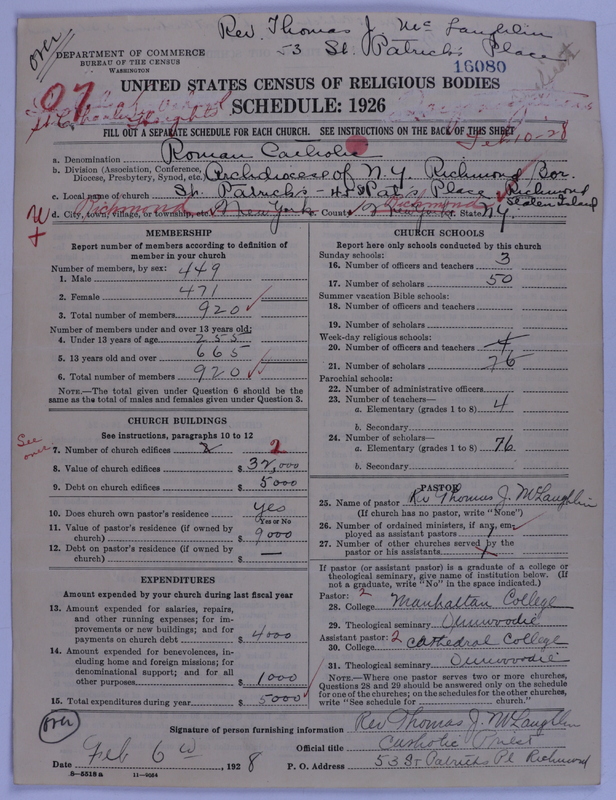 over
Rev. Thomas J. McLaughlin
53 St. Patrick's Place
DEPARTMENT OF COMMERCE
BUREAU OF THE CENSUS
WASHINGTON
16080
UNITED STATES CENSUS OF RELIGIOUS BODIES
SCHEDULE: 1926
FILL OUT A SEPARATE SCHEDULE FOR EACH CHURCH. SEE INSTRUCTIONS ON THE BACK OF THIS SHEET
Feb 10-28
a. Denomination Roman Catholic
b. Division (Association, Conference, Diocese, Presbytery, Synod, etc. Archdiocese of N.Y. Richmond Bor.
c. Local name of church St. Patrick's - St. Pat's Place Richmond
Staten Island
d. City, town, village, or township, etc. Richmond New York c. County Richmond New York State N.Y.
MEMBERSHIP
Report number of members according to definition of member in your church
Number of members, by sex:
1. Male 449
2. Female 471
3. Total number of members 920
Number of members under and over 13 years old:
4. Under 13 years of age 255
5. 13 years old and over 665
6. Total number of members 920
NOTE.—The total given under Question 6 should be the same as the total of males and females given under Question 3.
CHURCH BUILDINGS
See instructions, paragraphs 10 to 12
See over
7. Number of church edifices 2
8. Value of church edifices $ 32,000
9. Debt on church edifices $ 5000
10. Does church own pastor's residence? Yes
Yes or No
11. Value of pastor's residence (if owned by church) $ 9000
12. Debt on pastor's residence (if owned by church) $ —
EXPENDITURES
Amount expended by your church during last fiscal year
13. Amount expended for salaries, repairs, and other running expenses; for improvements or new buildings; and for payments on church debt $ 4000
14. Amount expended for benevolences, including home and foreign missions; for denominational support; and for all other purposes $ 1000
15. Total expenditures during year $ 5000
CHURCH SCHOOLS
Report here only schools conducted by this church
Sunday schools:
16. Number of officers and teachers 3
17. Number of scholars 50
Summer vacation Bible schools:
18. Number of officers and teachers
19. Number of scholars
Week-day religious schools:
20. Number of officers and teachers 4
21. Number of scholars 76
Parochial schools:
22. Number of administrative officers
23. Number of teachers—
a. Elementary (grades 1 to 8) 4
b. Secondary
24. Number of scholars—
a. Elementary (grades 1 to 8) 76
b. Secondary
PASTOR
25. Name of pastor Rev Thomas J. McLaughlin
(If church has no pastor, write "None")
26. Number of ordained ministers, if any, employed as assistant pastors 1
27. Number of other churches served by the pastor or his assistants
If pastor (or assistant pastor) is a graduate of a college or theological seminary, give name of institution below. (If not a graduate, write "No" in the space indicated.)
Pastor: 2
28. College Manhattan College
29. Theological seminary Dunwoodie
Assistant pastor: 2
30. College Cathedral College
31. Theological seminary Dunwoodie
NOTE.—Where one pastor serves two or more churches, Questions 28 and 29 should be answered only on the schedule for one of the churches; on the schedules for the other churches, write "See schedule for church."
over
Signature of person furnishing information Rev Thomas J. McLaughlin
Official title Catholic Priest
Date Feb 6, 1928
P. O. Address 53 St Patricks Pl Richmond
8—5518 a 11—9054